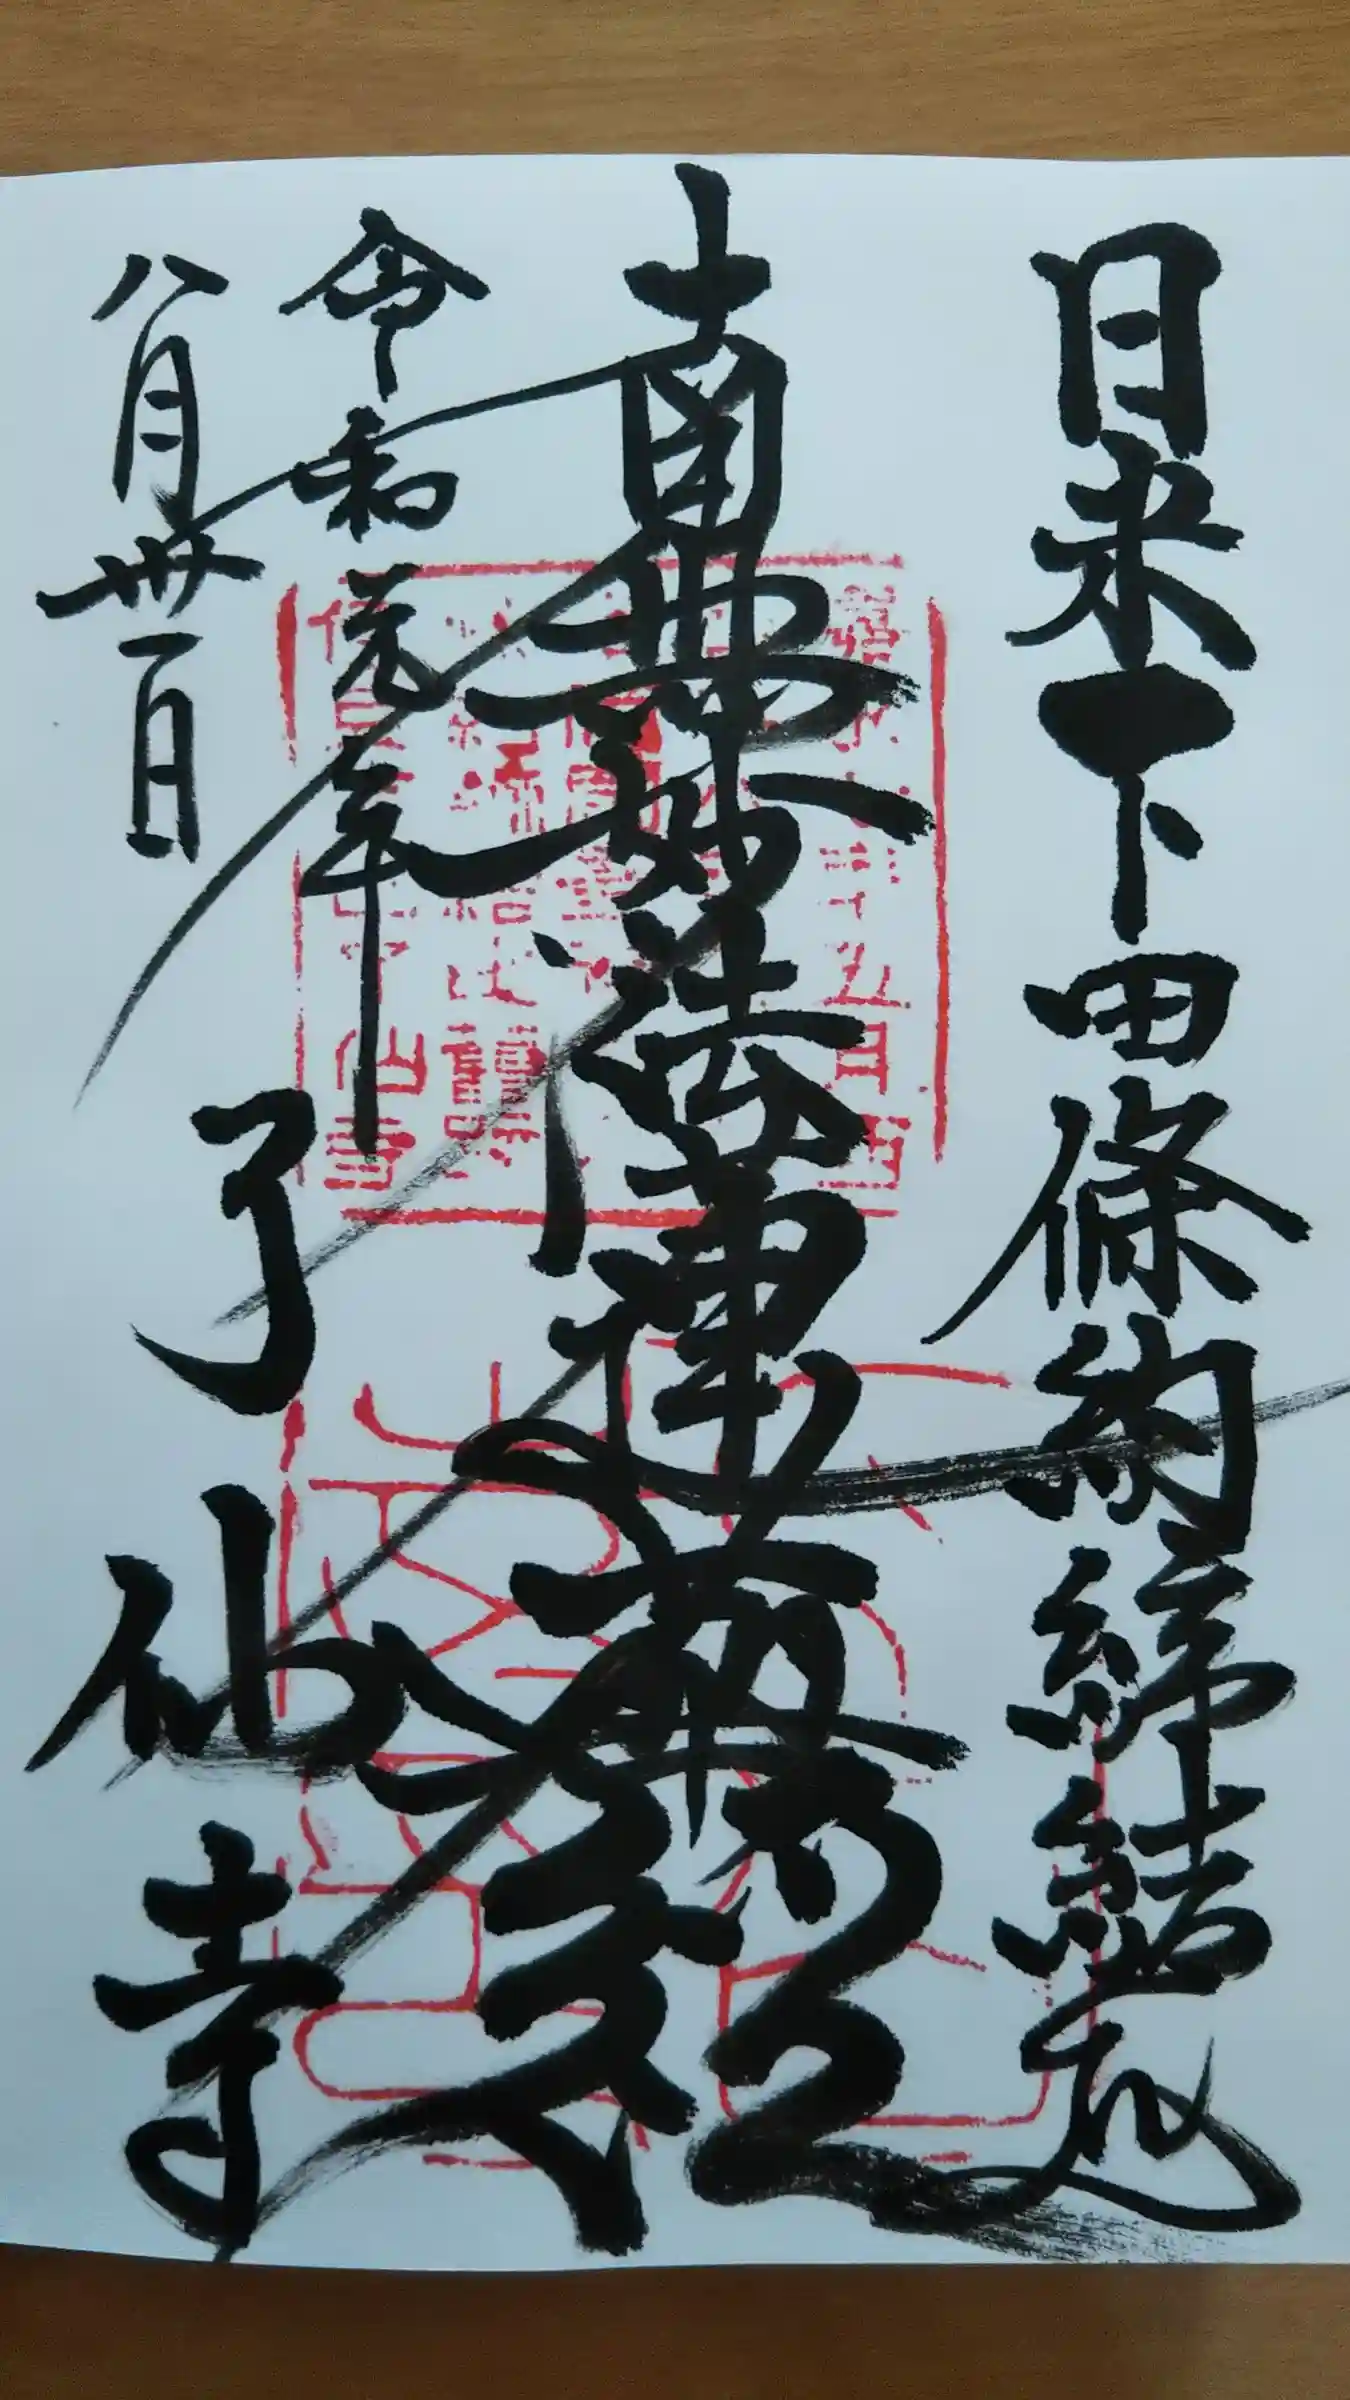 日米下田條約締結之地
南無妙法蓮華経
令和元年
八月卅一日
了仙寺